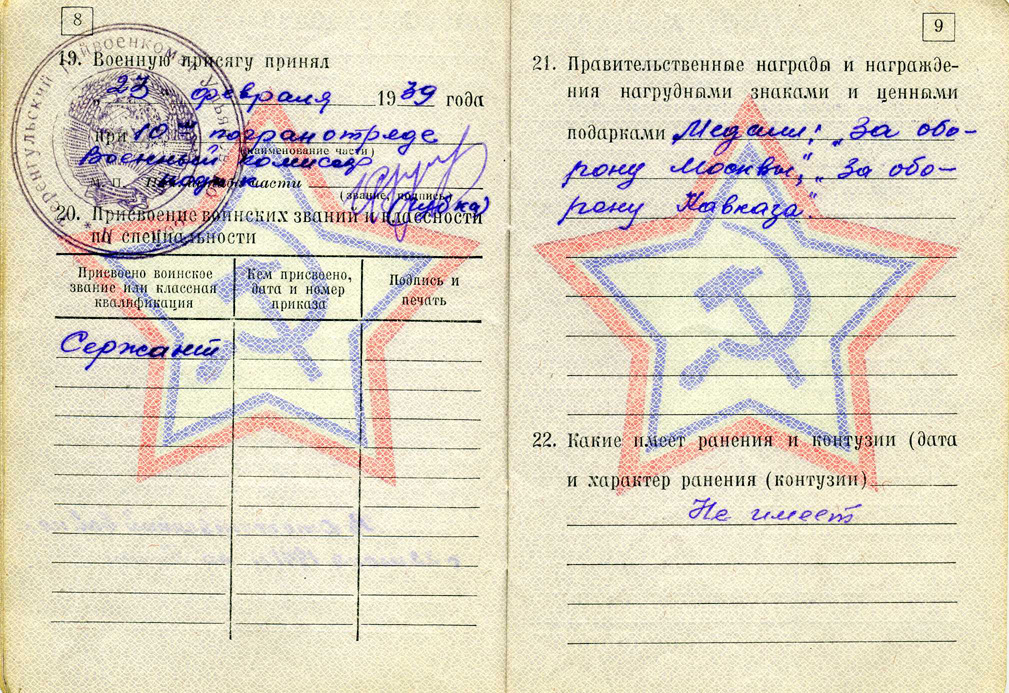 8
19. Военную присягу принял
„ 23 “ февраля 1939 года
при 10м погранотряде
(наименование части)
Военный комисар
М. П.
(звание, подпись)
20. Присвоение воинских званий и классности
по специальности
Присвоено воинское звание или классная квалификация
Кем присвоено, дата и номер приказа
Подпись и печать
Сержант
9
21. Правительственные награды и награжде-
ния нагрудными знаками и ценными
подарками Медали: „За обо-
рону Москвы", „За обо-
рону Кавказа".
22. Какие имеет ранения и контузии (дата
и характер ранения (контузии)
Не имеет